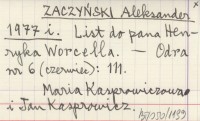 ZACZYŃSKI Aleksander
1977 i. List do pana Hen-
ryka Worcella. — Odra
nr 6 (czerwiec): 111.
Maria Kasprowiczowa
i Jan Kasprowicz.